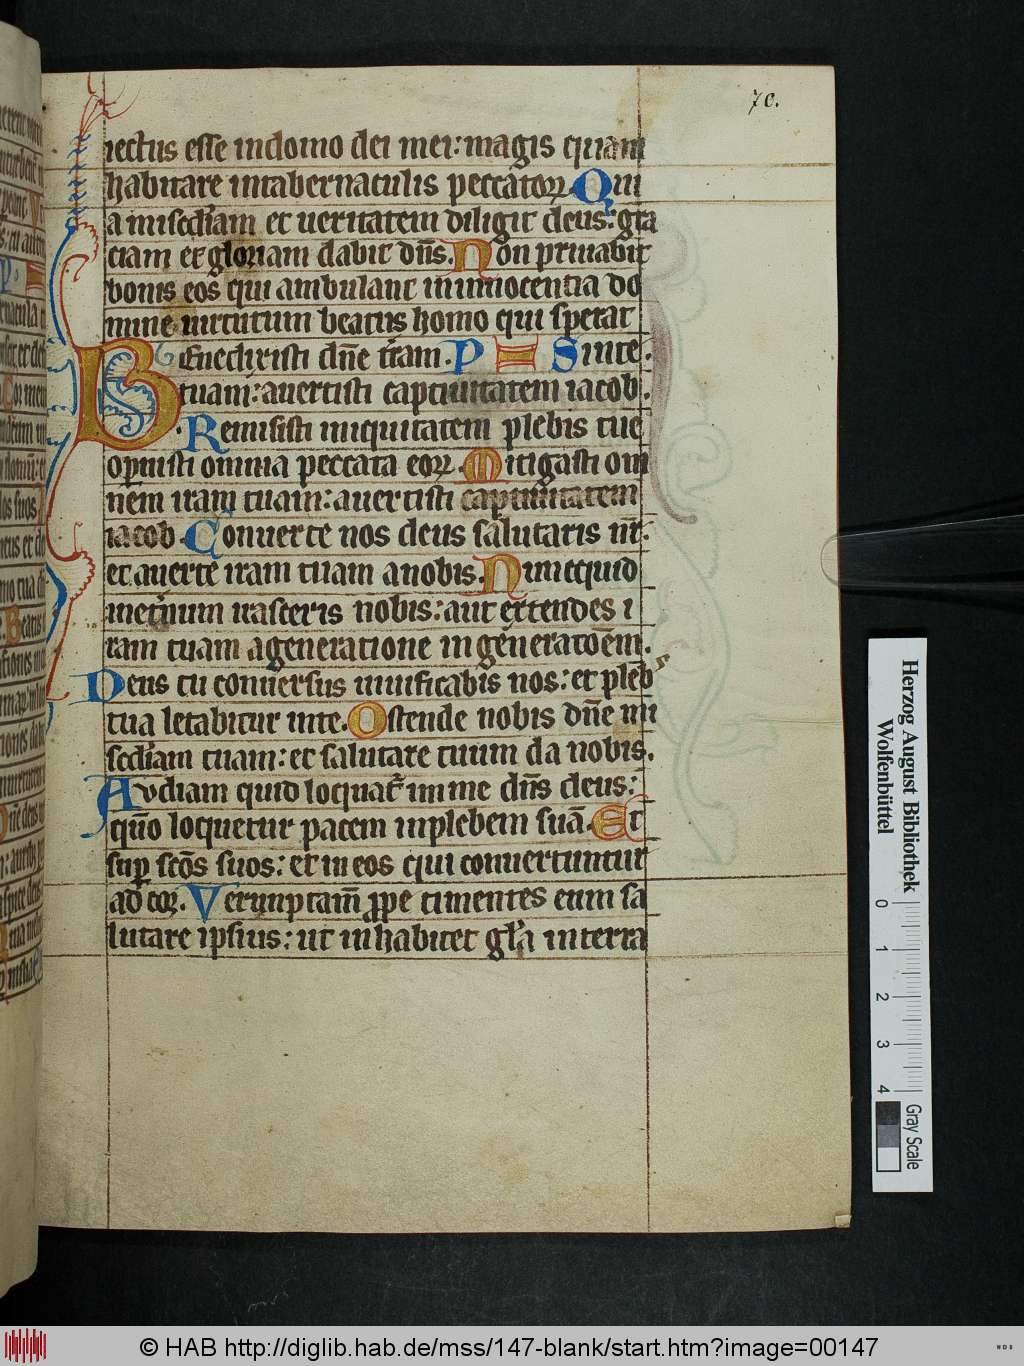 70.
iectus esse in domo dei mei: magis quam
habitare in tabernaculis peccatoꝝ. Qui
a mise͞diam et ueritatem diligit deus: gra
ciam et gloriam dabit dn̄s. Non priuabit
bonis eos qui ambulant in innocentia do
mine uirtutum beatus homo qui sperat
Benedixisti dn̄e t̄ram. P S in te.
tuam: auertisti captiuitatem iacob.
Remisisti iniquitatem plebis tue
operuisti omnia peccata eoꝝ. Mitigasti om
nem iram tuam: auertisti captiuitatem
iacob. Conuerte nos deus salutaris nr̄.
et auerte iram tuam a nobis. Nunequid
in et̄num irasceris nobis: aut extendes i
ram tuam a generatione in generatōem.
Deus tu conuersus uiuificabis nos: et plebs
tua letabitur in te. Ostende nobis dn̄e mi
sed̄iam tuam: et salutare tuum da nobis.
Avdiam quid loquat᷑ in me dn̄s deus:
qn̄o loquetur pacem in plebem suā. Et
suꝑ scōs suos: et in eos qui conuertuntur
ad cor. Verunptam̄ ꝓpe timentes eum sa
lutare ipsius: ut inhabitet gl̄a in terra
Herzog August Bibliothek
Wolfenbüttel
0 1 2 3 4
Gray Scale
© HAB http://diglib.hab.de/mss/147-blank/start.htm?image=00147